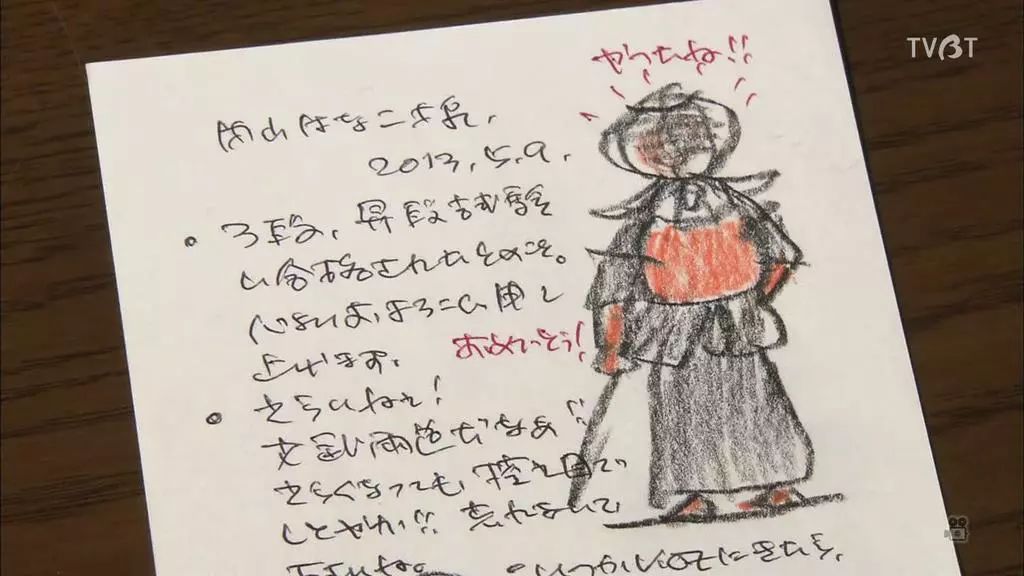 TVBT
やったね!!
関山はな二歩兵、
2013.5.9.
・3段、昇段試験
に合格されたとのこと。
心よりおよろこび申し
上げます。
おめでとう!
・えらいねえ!
文武両道だなあ!!
えらくなっても、控え目で
しとやか!! 忘れないで